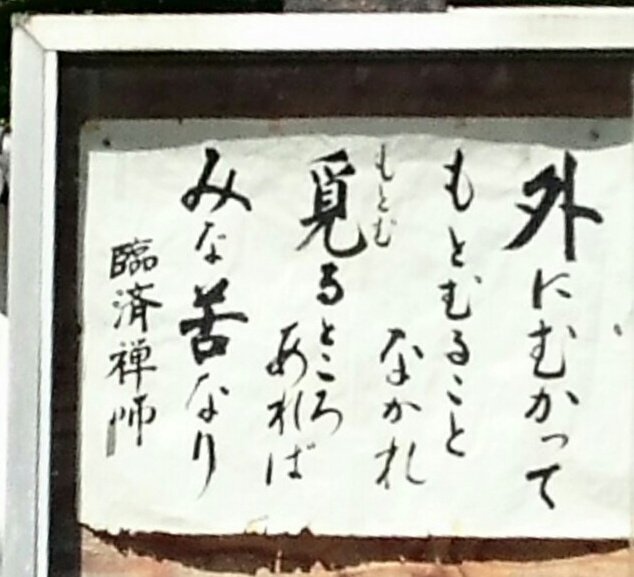 外にむかって
もとむること
なかれ
覓るところ
もとむ
あれば
みな苦なり
臨済禅師